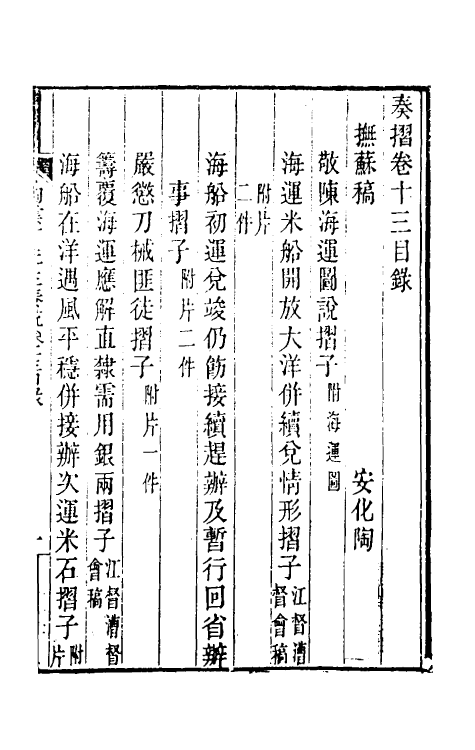 奏摺卷十三目錄
撫蘇稿　安化陶
敬陳海運圖說摺子附海運圖
海運米船開放大洋併續兌情形摺子江督漕督會稿
附片二件
海船初運兌竣仍飭接續趕辦及暫行回省辦
事摺子附片二件
嚴懲刀械匪徒摺子附片一件
籌覆海運應解直隸需用銀兩摺子江督漕督會稿
海船在洋遇風平穩併接辦次運米石摺子附片